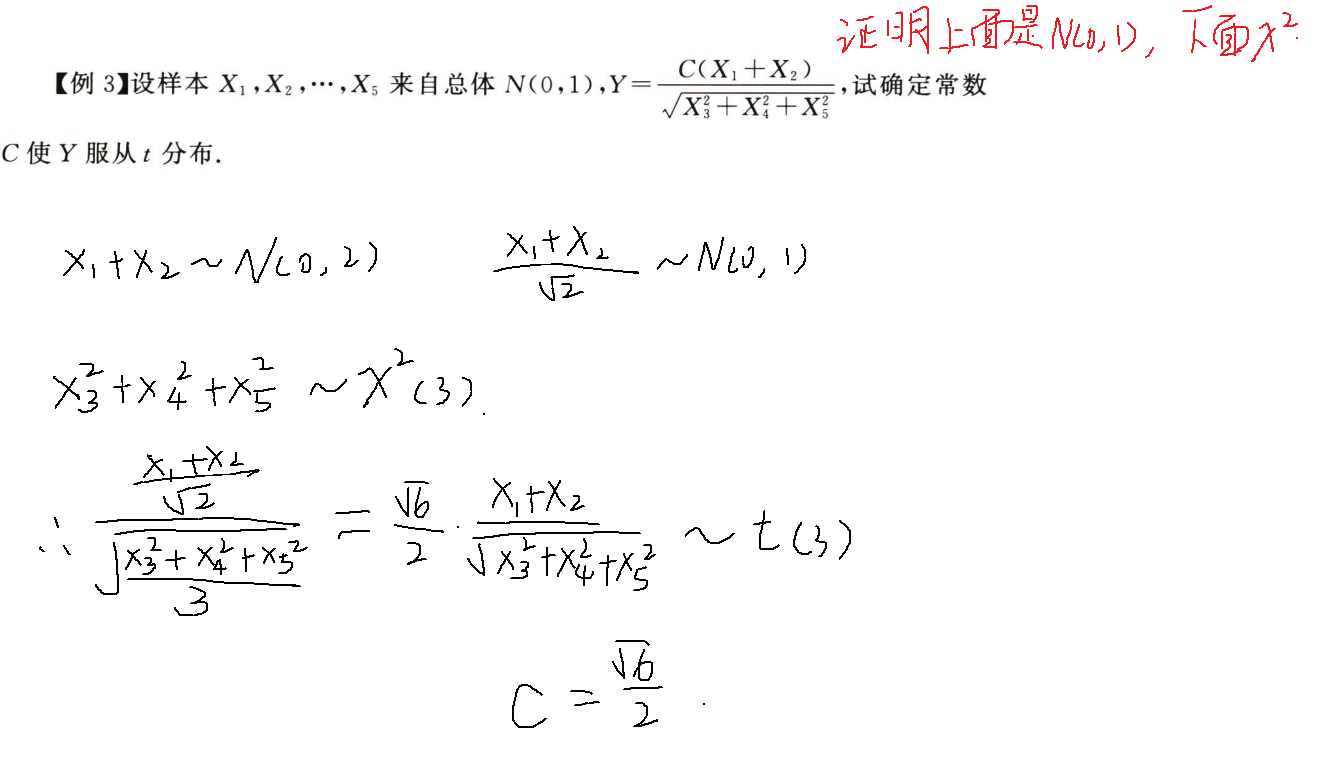 证明上面是N(0,1), 下面χ².
【例 3】设样本 X₁,X₂,⋯,X₅ 来自总体 N(0,1),Y=C(X₁+X₂)/√(X₃²+X₄²+X₅²),试确定常数
C 使 Y 服从 t 分布.
X₁+X₂~N(0,2) (X₁+X₂)/√2 ~N(0,1)
X₃²+X₄²+X₅² ~χ²(3).
∴ ((X₁+X₂)/√2)/√((X₃²+X₄²+X₅²)/3) = √6/2 · (X₁+X₂)/√(X₃²+X₄²+X₅²) ~ t(3)
C = √6/2 .